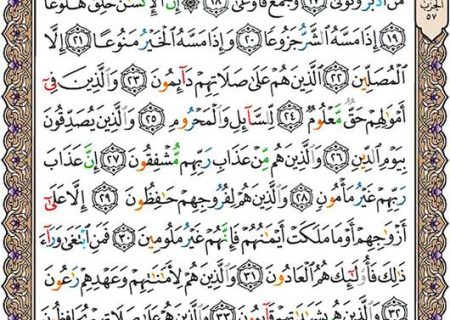 الحزب
٥٧
مَنْ أَدْبَرَ وَتَوَلَّىٰ ﴿١٧﴾ وَجَمَعَ فَأَوْعَىٰ ﴿١٨﴾ إِنَّ ٱلْإِنسَٰنَ خُلِقَ هَلُوعًا
﴿١٩﴾ إِذَا مَسَّهُ ٱلشَّرُّ جَزُوعًا ﴿٢٠﴾ وَإِذَا مَسَّهُ ٱلْخَيْرُ مَنُوعًا ﴿٢١﴾ إِلَّا
ٱلْمُصَلِّينَ ﴿٢٢﴾ ٱلَّذِينَ هُمْ عَلَىٰ صَلَاتِهِمْ دَآئِمُونَ ﴿٢٣﴾ وَٱلَّذِينَ فِىٓ
أَمْوَٰلِهِمْ حَقٌّ مَّعْلُومٌ ﴿٢٤﴾ لِّلسَّآئِلِ وَٱلْمَحْرُومِ ﴿٢٥﴾ وَٱلَّذِينَ يُصَدِّقُونَ
بِيَوْمِ ٱلدِّينِ ﴿٢٦﴾ وَٱلَّذِينَ هُم مِّنْ عَذَابِ رَبِّهِم مُّشْفِقُونَ ﴿٢٧﴾ إِنَّ عَذَابَ
رَبِّهِمْ غَيْرُ مَأْمُونٍ ﴿٢٨﴾ وَٱلَّذِينَ هُمْ لِفُرُوجِهِمْ حَٰفِظُونَ ﴿٢٩﴾ إِلَّا عَلَىٰٓ
أَزْوَٰجِهِمْ أَوْ مَا مَلَكَتْ أَيْمَٰنُهُمْ فَإِنَّهُمْ غَيْرُ مَلُومِينَ ﴿٣٠﴾ فَمَنِ ٱبْتَغَىٰ وَرَآءَ
ذَٰلِكَ فَأُو۟لَٰٓئِكَ هُمُ ٱلْعَادُونَ ﴿٣١﴾ وَٱلَّذِينَ هُمْ لِأَمَٰنَٰتِهِمْ وَعَهْدِهِمْ رَٰعُونَ
﴿٣٢﴾ وَٱلَّذِينَ هُم بِشَهَٰدَٰتِهِمْ قَآئِمُونَ ﴿٣٣﴾ وَٱلَّذِينَ هُمْ عَلَىٰ صَلَاتِهِمْ يُحَافِظُونَ